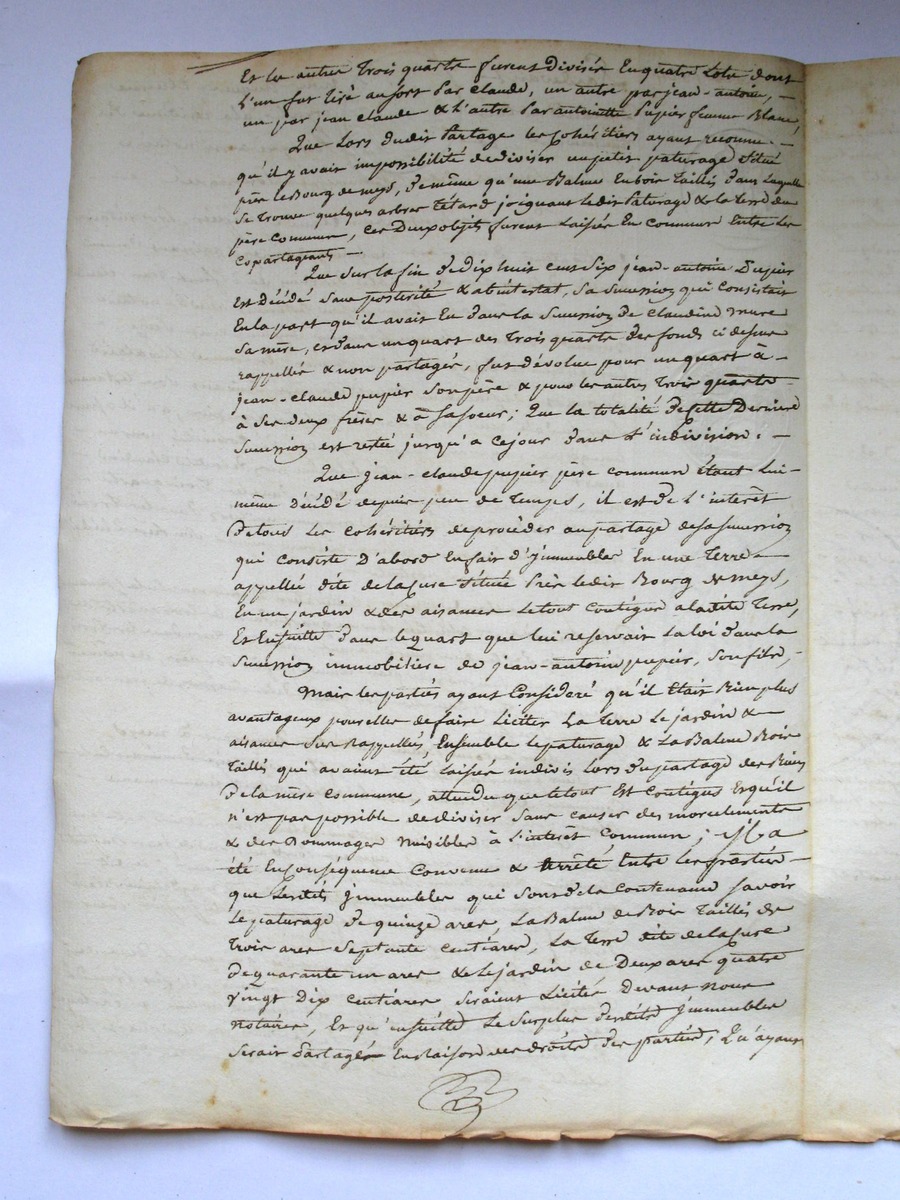 Et les autres trois quarts furent divisés en quatre lots dont
l'un fut tiré au sort par claude, un autre par jean-antoine, —
un par jean claude & l'autre par antoinette Pupier femme Blanc,
Que lors dudit partage les cohéritiers ayant reconnu —
qu'il y avait impossibilité de diviser un petit paturage situé
près le Bourg de meys, de même qu'une Balme en bois taillis dans laquelle
se trouve quelques arbres têtard joignant ledit paturage & la terre du
père commun, ces deux objets furent laissés en commun entre les
copartageants —
Que sur la fin de dix huit cent six jean-antoine Pupier
est décédé sans postérité & abintestat, sa succession qui consistait
en la part qu'il avait eu dans la succession de claudine mure
sa mère, et dans un quart des trois quarts des fonds ci dessus
rappellés & non partagés, fut dévolue pour un quart à -
jean-claude pupier son père & pour les autres trois quarts -
à ses deux frères & à sa soeur; Que la totalité de cette dernière
succession est restée jusqu'a ce jour dans l'indivision. —
Que jean-claude pupier père commun étant lui-
même décédé depuis peu de temps, il est de l'intérêt
de tous les cohéritiers de procéder au partage de sa succession
qui consiste d'abord en fait d'jmmeubles en une terre
appellée dite de la cure située près ledit Bourg de meys,
en un jardin & des aisances le tout contigue a ladite terre,
et ensuitte dans le quart que lui reservait la loi dans la
succession immobilière de jean-antoine pupier, son fils, -
Mais les parties ayant considéré qu'il était bien plus
avantageux pour elles de faire liciter la terre le jardin &
aisances sus rappellés, ensemble le paturage & la Balme Bois
taillis qui avaient été laissés indivis lors du partage des biens
de la mère commune, attendu que le tout est contigus et qu'il
n'est pas possible de diviser sans causer des morcelements
& des dommages nuisibles à l'interêt commun; il a
été en conséquence convenu & arrêté entre les parties -
que lesdits jmmeubles qui sont de la contenance savoir
le paturage de quinze ares, la Balme de Bois taillis de
trois ares septante centiares, la terre dite de la cure
de quarante un ares & le jardin de deux ares quatre
vingt dix centiares seraient licités devant nous
notaires, et qu'ensuitte le surplus desdits jmmeubles
serait partagés en raison des droits des parties; Qu'ayant